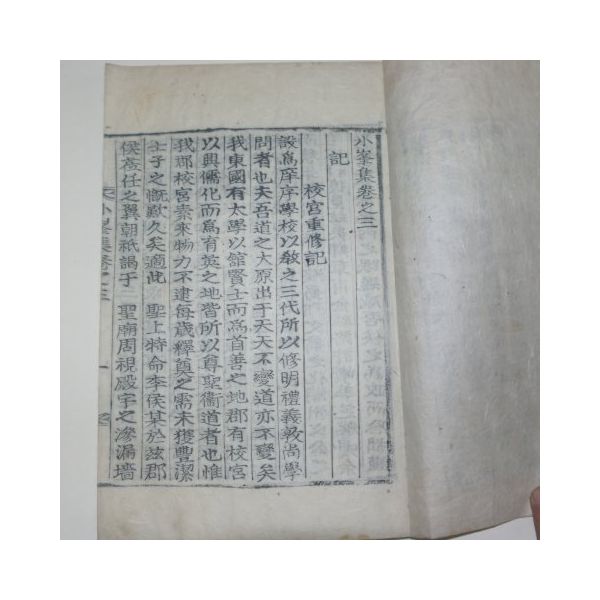 小峯集卷之三
記
校宮重修記
設爲庠序學校以敎之三代所以修明禮義敦尙學
問者也夫吾道之大原出于天天不變道亦不變矣
我東國有太學以館賢士而爲首善之地郡有校宮
以興儒化而爲育英之地皆所以尊聖衞道者也惟
我郡校宮素來物力不逮每歲釋奠之需未獲豐潔
士子之慨歎久矣適此 聖上特命李侯某於玆郡
侯莅任之翼朝祇謁于 聖廟周視殿宇之滲漏墻
小峯集卷之三 一